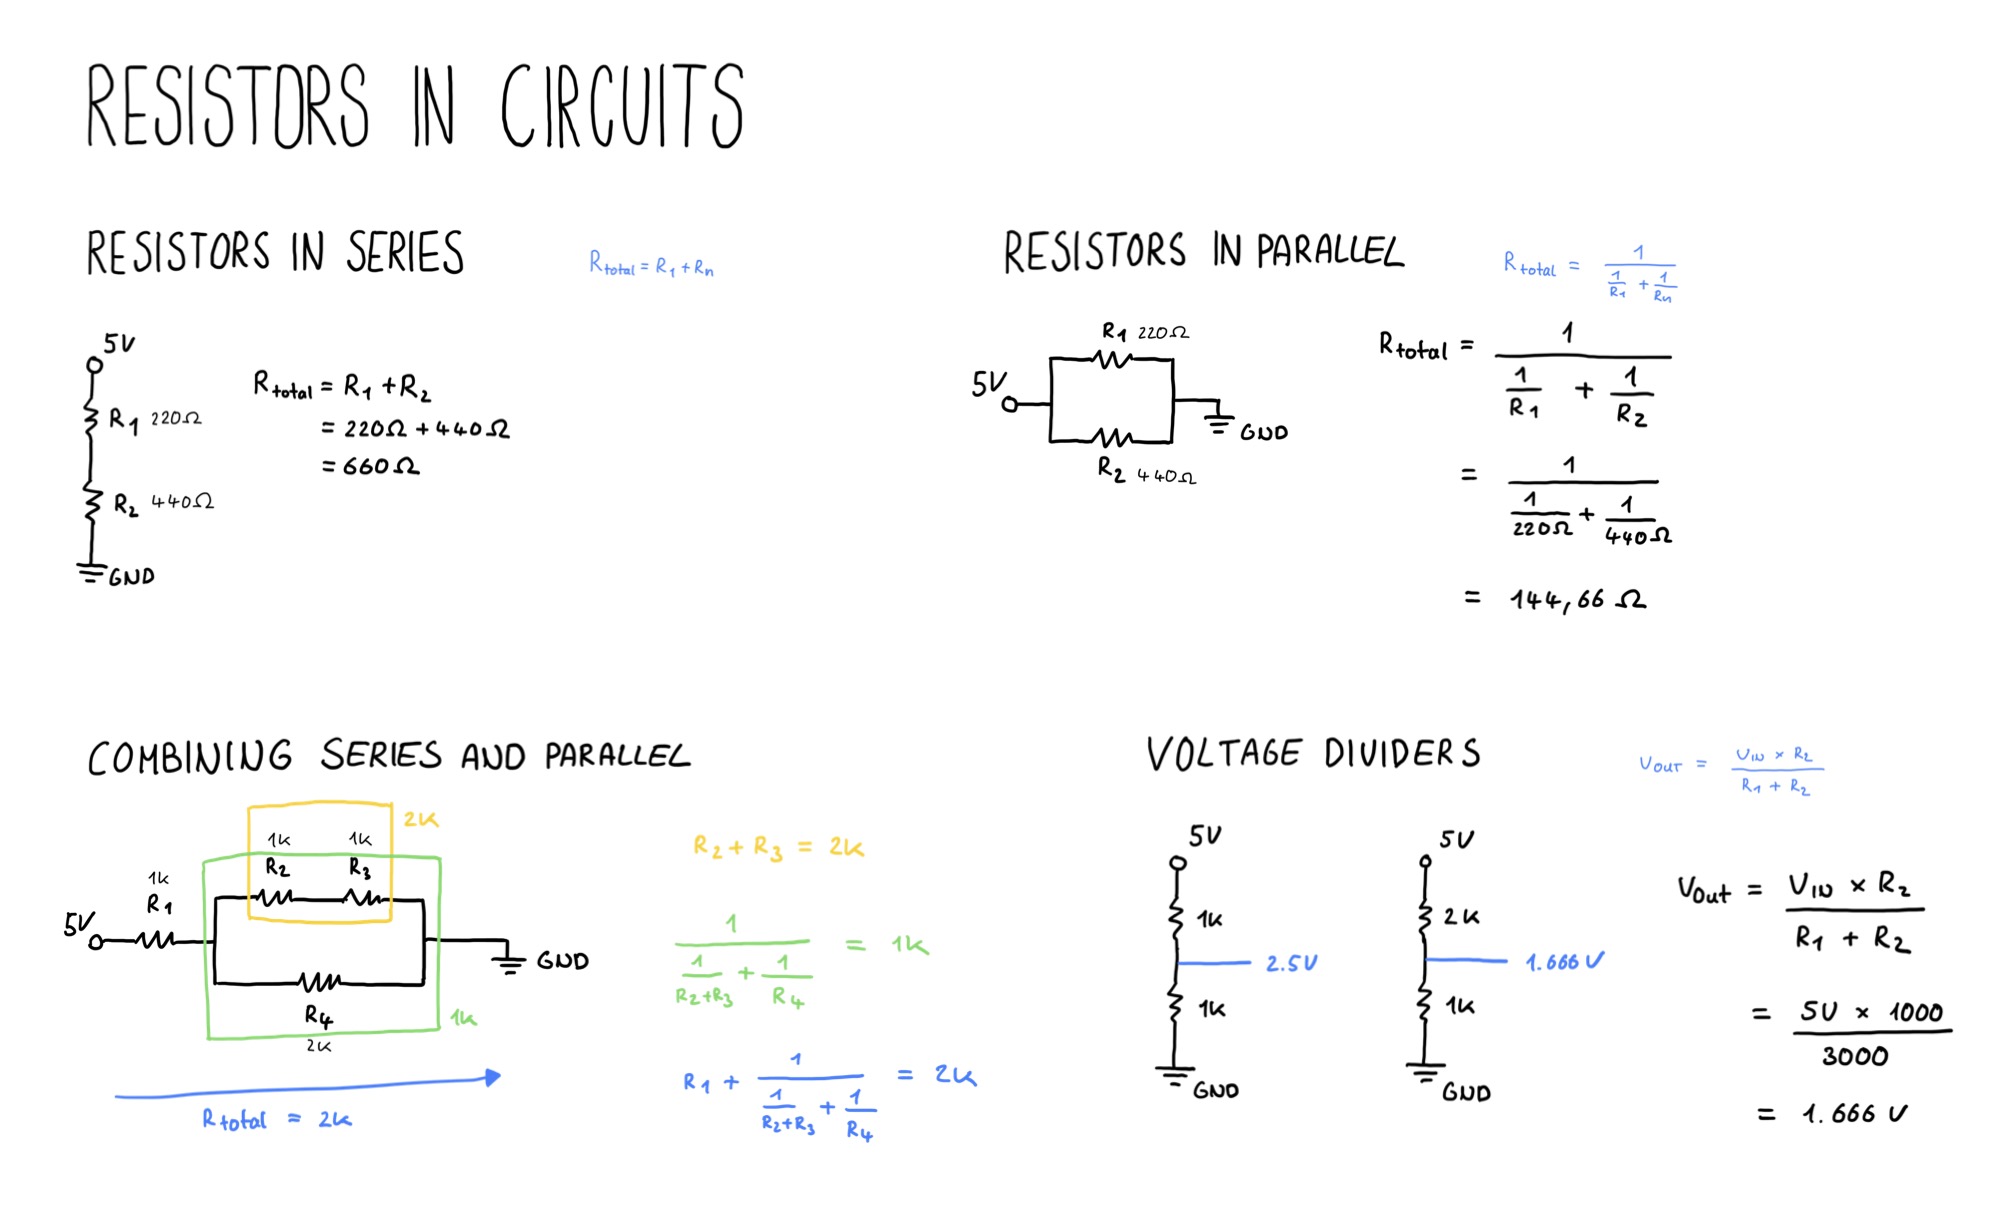 RESISTORS IN CIRCUITS
RESISTORS IN SERIES
Rtotal = R1 + Rn
5V
R1 220Ω
R2 440Ω
GND
Rtotal = R1 + R2
= 220Ω + 440Ω
= 660Ω
RESISTORS IN PARALLEL
Rtotal = 1 / (1/R1 + 1/Rn)
R1 220Ω
5V
GND
R2 440Ω
Rtotal = 1 / (1/R1 + 1/R2)
= 1 / (1/220Ω + 1/440Ω)
= 144,66 Ω
COMBINING SERIES AND PARALLEL
2K
1K 1K
R2 R3
1K
R1
5V
GND
R4
2K
1K
Rtotal = 2K
R2 + R3 = 2K
1 / (1/R2+R3 + 1/R4) = 1K
R1 + 1 / (1/R2+R3 + 1/R4) = 2K
VOLTAGE DIVIDERS
VOUT = VIN × R2 / R1 + R2
5V
1K
2.5V
1K
GND
5V
2K
1.666V
1K
GND
VOut = VIN × R2 / R1 + R2
= 5V × 1000 / 3000
= 1.666 V